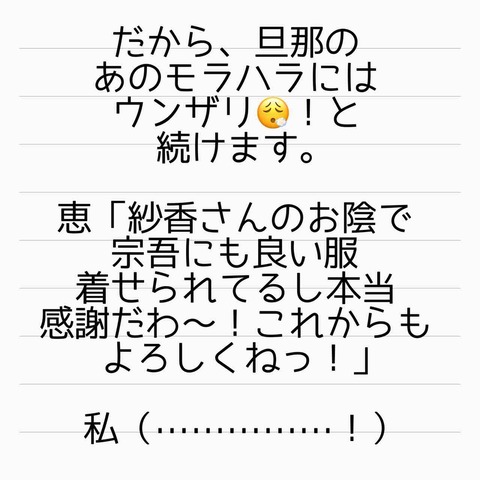 だから、旦那の
あのモラハラには
ウンザリ😮‍💨！と
続けます。
恵「紗香さんのお陰で
宗吾にも良い服
着せられてるし本当
感謝だわ〜！これからも
よろしくねっ！」
私（……………！）